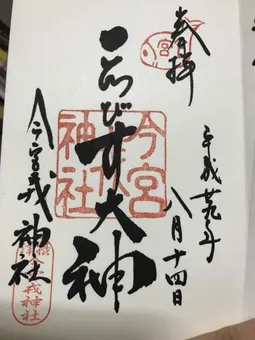 奉拝
宮
平成廿九年
八月十四日
ゑびす大神
今宮
神社
今宮戎神社
今宮戎神社